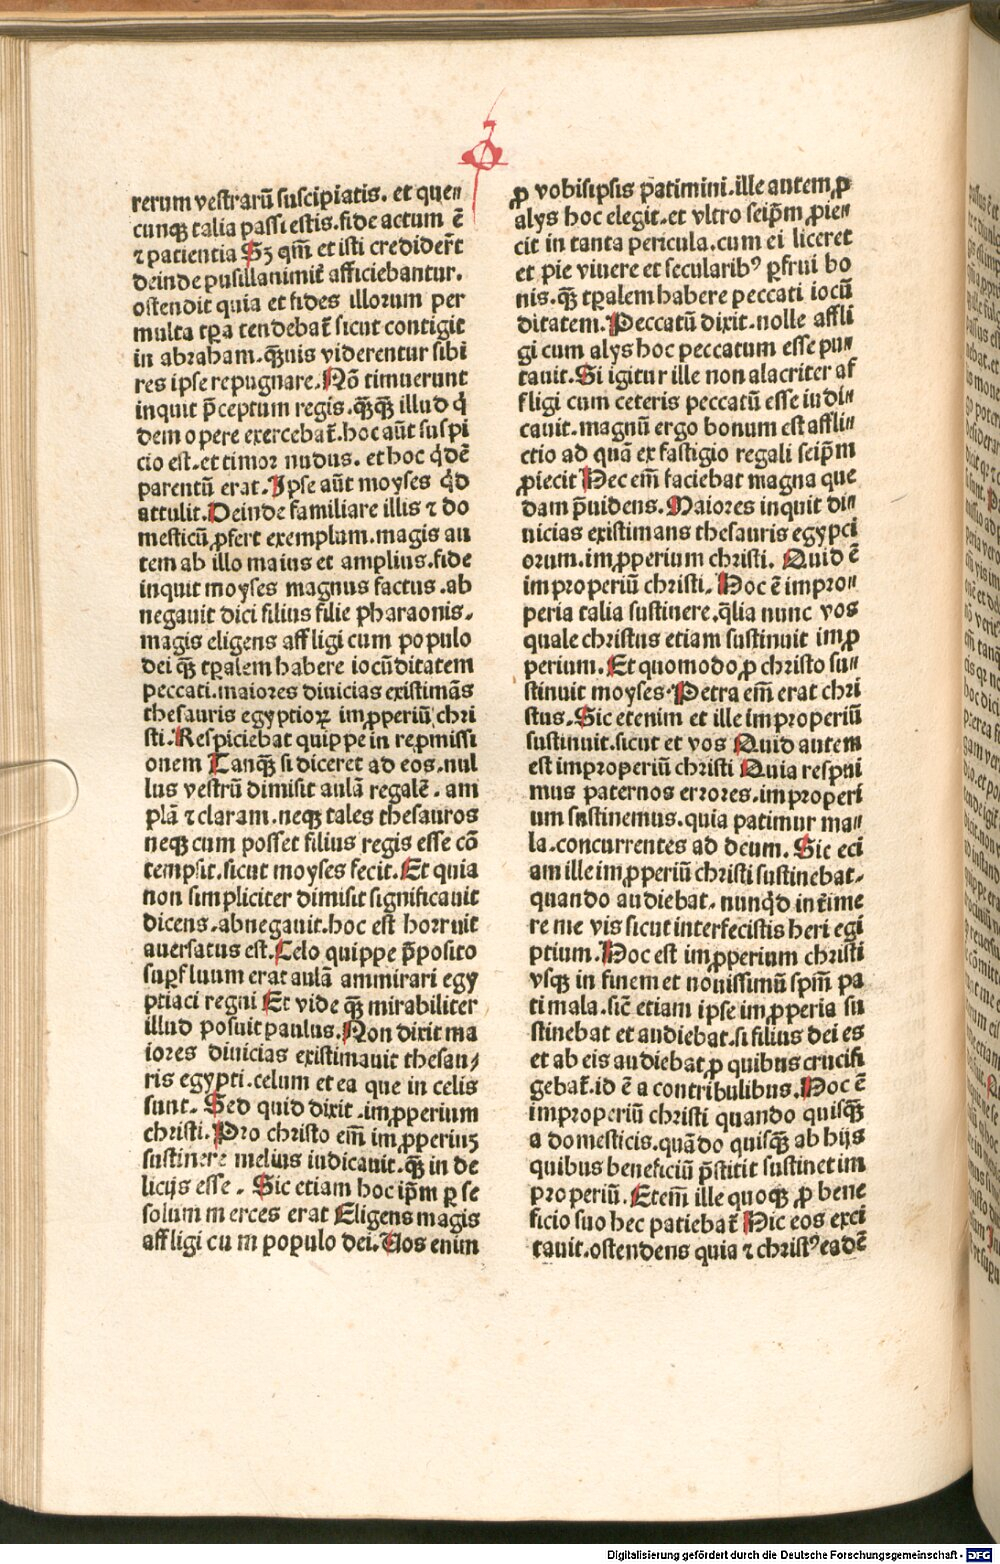 rerum vestrarū suscipiatis. et que〃
cunqꝫ talia passi estis. fide actum ē
⁊ patientia Sꝫ qm̄ et isti crediderūt
deinde pusillanimit̄ afficiebantur.
ostendit quia et fides illorum per
multa tꝑa tendebat̄ sicut contigit
in abraham. qꝫuis viderentur sibi
res ipse repugnare. Nō timuerunt
inquit p̄ceptum regis. qꝫqꝫ illud q̇
dem opere exercebat̄. hoc aūt suspi
cio est. et timor nudus. et hoc q̇dē
parentū erat. Ipse aūt moyses qd̓
attulit. Deinde familiare illis ⁊ do
mesticū ꝓfert exemplum. magis au
tem ab illo maius et amplius. fide
inquit moyses magnus factus. ab
negauit dici filius filie pharaonis.
magis eligens affligi cum populo
dei qꝫ tꝑalem habere iocūditatem
peccati. maiores diuicias existimās
thesauris egyptioꝝ imꝓperiū chri
sti. Respiciebat quippe in repmissi
onem Tanqꝫ si diceret ad eos. nul
lus vestrū dimisit aulā regalē. am
plā ⁊ claram. neqꝫ tales thesauros
neqꝫ cum posset filius regis esse cō
tempsit. sicut moyses fecit. Et quia
non simpliciter dimisit significauit
dicens. abnegauit. hoc est horruit
auersatus est. Celo quippe p̄posito
suꝑfluum erat aulā ammirari egy
ptiaci regni Et vide qꝫ mirabiliter
illud posuit paulus. Non dixit ma
iores diuicias existimauit thesau/
ris egypti. celum et ea que in celis
sunt. Sed quid dixit. imꝓperium
christi. Pro christo em̄ imꝓperiuꝫ
sustinere melius iudicauit. qꝫ in de
licijs esse. Sic etiam hoc ip̄m ꝑ se
solum merces erat Eligens magis
affligi cum populo dei. Uos enim
ꝓ vobisipsis patimini. ille autem ꝓ
alys hoc elegit. et vltro seip̄m ꝓie〃
cit in tanta pericula. cum ei liceret
et pie viuere et secularibꝰ ꝑfrui bo
nis. qꝫ tꝑalem habere peccati iocū
ditatem. Peccatū dixit. nolle affli
gi cum alys hoc peccatum esse pu〃
tauit. Si igitur ille non alacriter af
fligi cum ceteris peccatū esse iudi〃
cauit. magnū ergo bonum est affli〃
ctio ad quā ex fastigio regali seip̄m
ꝓiecit Hec em̄ faciebat magna que
dam p̄uidens. Maiores inquit di〃
uicias existimans thesauris egypti
orum. imꝓperium christi. Quid ē
improperiū christi. Hoc ē impro〃
peria talia sustinere. q̄lia nunc vos
quale christus etiam sustinuit imꝓ
perium. Et quomodo ꝓ christo su〃
stinuit moyses. Petra em̄ erat chri
stus. Sic etenim et ille improperiū
sustinuit. sicut et vos Quid autem
est improperiū christi Quia respui
mus paternos errores. improperi
um sustinemus. quia patimur ma〃
la. concurrentes ad deum. Sic eci
am ille imꝓperiū christi sustinebat.
quando audiebat. nunqd̓ int̄ime
re me vis sicut interfecistis heri egi
ptium. Hoc est imꝓperium christi
vsqꝫ in finem et nouissimū spm̄ pa
ti mala. sic̄ etiam ipse imꝓperia su
stinebat et audiebat. si filius dei es
et ab eis audiebat ꝓ quibus crucifi
gebat̄. id ē a contribulibus. Hoc ē
improperiū christi quando quisqꝫ
a domesticis. quādo quisqꝫ ab hijs
quibus beneficiū p̄stitit sustinet im
properiū. Etem̄ ille quoqꝫ ꝓ bene
ficio suo hec patiebat̄ Hic eos exci
tauit. ostendens quia ⁊ christꝰ eadē
Digitalisierung gefördert durch die Deutsche Forschungsgemeinschaft - DFG